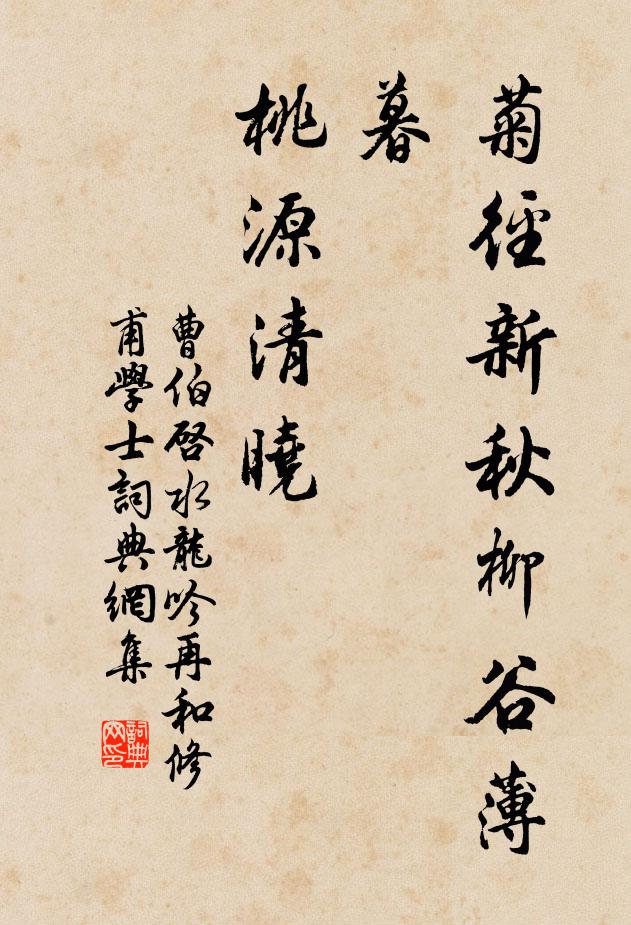 菊徑新秋柳谷薄
暮
桃源清曉
曹伯啓水龍吟再和修
甫學士詞典網集
詞典网印